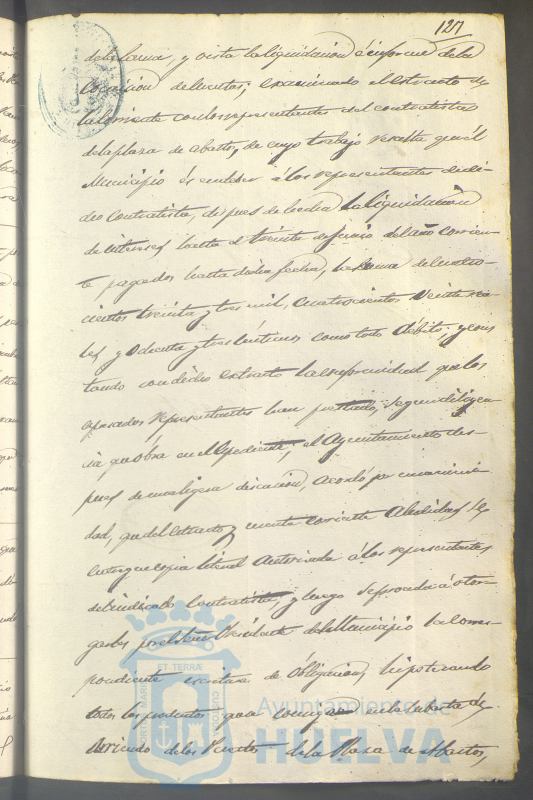 127
de la misma, y vista la liquidacion é informe de la
Comision de Cuentas; examinado el estracto de
la corriente con los representantes del contratista
de la plaza de abastos, de cuyo trabajo resulta que el
Municipio és en deber á los representantes de di-
cho contratista, despues de hecha la liquidacion
de intereses hasta el treinta de Junio del año corrien-
te pagados hasta dicha fecha, la suma de cuatro-
cientos treinta y tres mil, cuatrocientos veinte rea-
les y ochenta y tres céntimos como todo débito; y cons-
tando en dicho extracto la conformidad que los
espresados representantes han prestado, segun diligen-
cia que obra en el Espediente; el Ayuntamiento des-
pues de una ligera discusion, acordó por unanimi-
dad, que del estracto y cuenta corriente aludidas se
entregue copia literal autorizada á los representantes
del indicado contratista, y luego se proceda á otor-
garles por el Señor Presidente del Municipio la corres-
pondiente escritura de obligacion, hipotecando
todos los productos que se consigan en la subasta de
Arriendo de los Puestos de la Plaza de Abastos,
PORTUS MARIS
ET TERRÆ
CUSTODIA
Ayuntamiento de
HUELVA